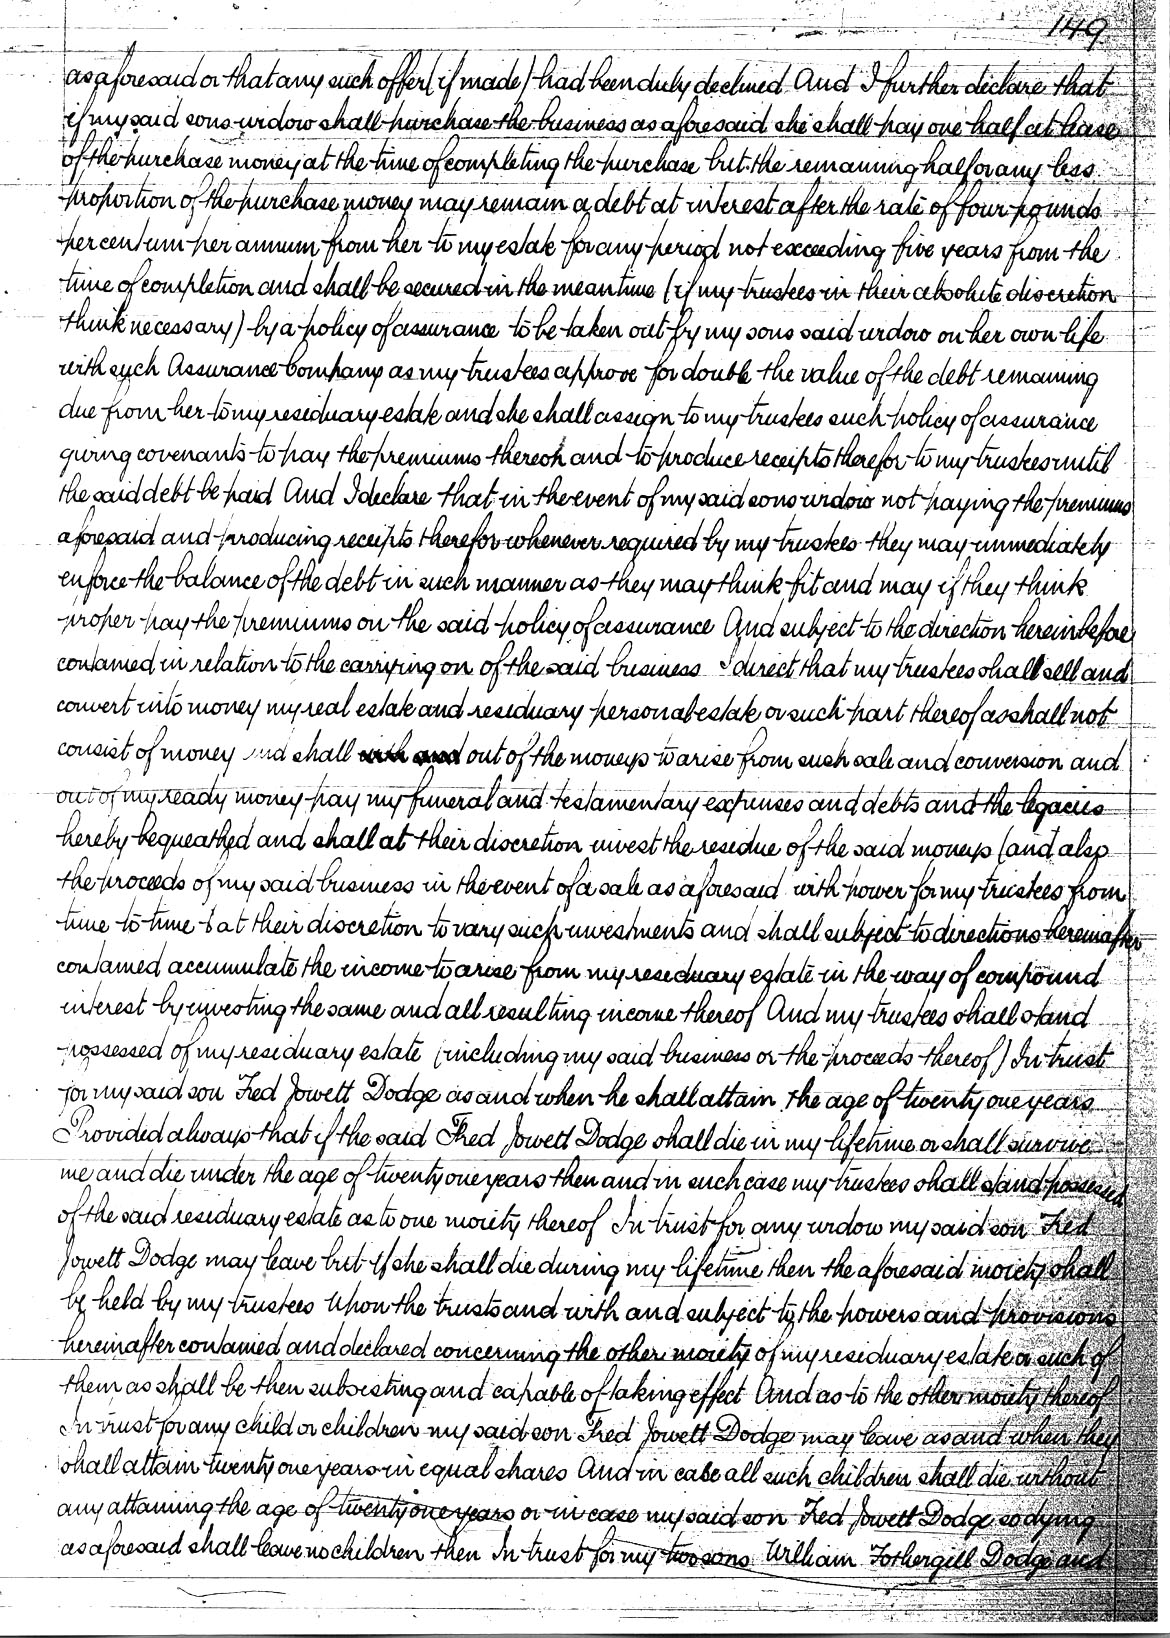 149
as aforesaid or that any such offer (if made) had been duly declined And I further declare that
if my said sons widow shall purchase the business as aforesaid she shall pay one half at least
of the purchase money at the time of completing the purchase but the remaining half or any less
proportion of the purchase money may remain a debt at interest after the rate of four pounds
per centum per annum from her to my estate for any period not exceeding five years from the
time of completion and shall be secured in the meantime (if my trustees in their absolute discretion
think necessary) by a policy of assurance to be taken out by my sons said widow on her own life
with such Assurance Company as my trustees approve for double the value of the debt remaining
due from her to my residuary estate and she shall assign to my trustees such policy of assurance
giving covenants to pay the premiums thereon and to produce receipts therefor to my trustees until
the said debt be paid And I declare that in the event of my said sons widow not paying the premiums
aforesaid and producing receipts therefor whenever required by my trustees they may immediately
enforce the balance of the debt in such manner as they may think fit and may if they think
proper pay the premiums on the said policy of assurance And subject to the direction hereinbefore
contained in relation to the carrying on of the said business I direct that my trustees shall sell and
convert into money my real estate and residuary personal estate or such part thereof as shall not
consist of money and shall out of the moneys to arise from such sale and conversion and
out of my ready money pay my funeral and testamentary expenses and debts and the legacies
hereby bequeathed and shall at their discretion invest the residue of the said moneys (and also
the proceeds of my said business in the event of a sale as aforesaid with power for my trustees from
time to time at their discretion to vary such investments and shall subject to directions hereinafter
contained accumulate the income to arise from my residuary estate in the way of compound
interest by investing the same and all resulting income thereof And my trustees shall stand
possessed of my residuary estate (including my said business or the proceeds thereof) In trust
for my said son Fred Jowett Dodge as and when he shall attain the age of twenty one years
Provided always that if the said Fred Jowett Dodge shall die in my lifetime or shall survive
me and die under the age of twenty one years then and in such case my trustees shall stand possessed
of the said residuary estate as to one moiety thereof In trust for any widow my said son Fred
Jowett Dodge may leave but if she shall die during my lifetime then the aforesaid moiety shall
be held by my trustees Upon the trusts and with and subject to the powers and provisions
hereinafter contained and declared concerning the other moiety of my residuary estate or such of
them as shall be then subsisting and capable of taking effect And as to the other moiety thereof
In trust for any child or children my said son Fred Jowett Dodge may leave as and when they
shall attain twenty one years in equal shares And in case all such children shall die without
any attaining the age of twenty one years or in case my said son Fred Jowett Dodge so dying
as aforesaid shall leave no children then In trust for my two sons William Fothergill Dodge and